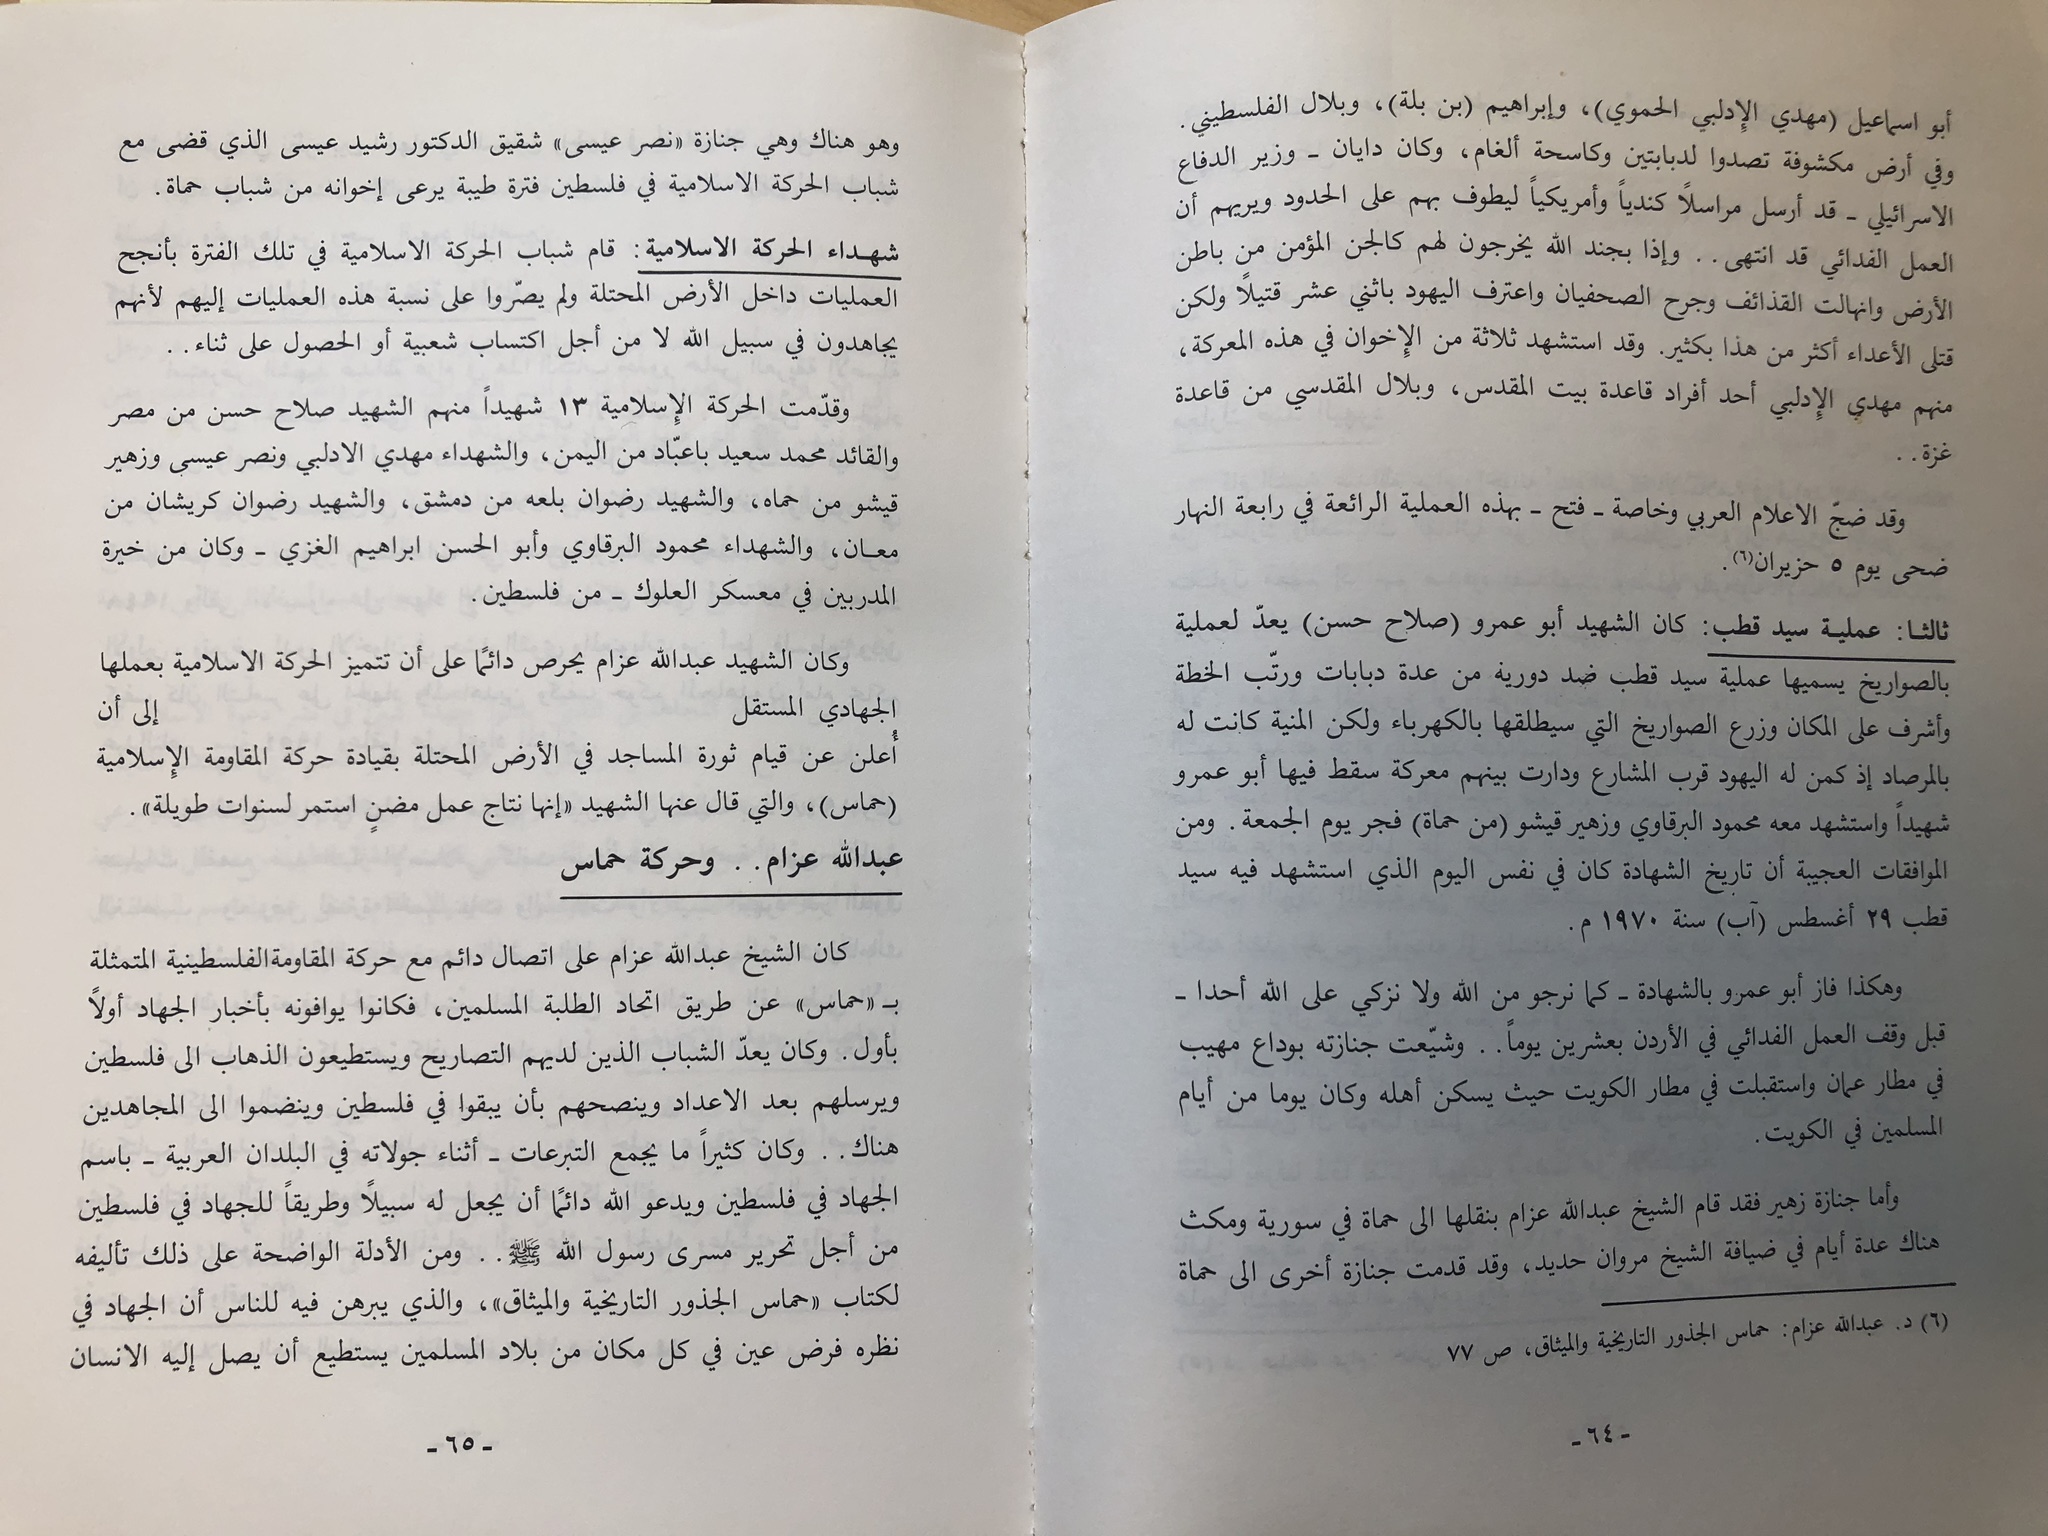 أبو اسماعيل (مهدي الإدلبي الحموي)، وإبراهيم (بن بلة)، وبلال الفلسطيني.
وفي أرض مكشوفة تصدوا لدبابتين وكاسحة ألغام، وكان دايان ـ وزير الدفاع
الاسرائيلي ـ قد أرسل مراسلاً كندياً وأمريكياً ليطوف بهم على الحدود ويريهم أن
العمل الفدائي قد انتهى.. وإذا بجند الله يخرجون لهم كالجن المؤمن من باطن
الأرض وانهالت القذائف وجرح الصحفيان واعترف اليهود باثني عشر قتيلاً ولكن
قتلى الأعداء أكثر من هذا بكثير. وقد استشهد ثلاثة من الإخوان في هذه المعركة،
منهم مهدي الإدلبي أحد أفراد قاعدة بيت المقدس، وبلال المقدسي من قاعدة
غزة..
وقد ضجّ الاعلام العربي وخاصة ـ فتح ـ بهذه العملية الرائعة في رابعة النهار
ضحى يوم ٥ حزيران(٦).
ثالثا: عملية سيد قطب: كان الشهيد أبو عمرو (صلاح حسن) يعدّ لعملية
بالصواريخ يسميها عملية سيد قطب ضد دورية من عدة دبابات ورتّب الخطة
وأشرف على المكان وزرع الصواريخ التي سيطلقها بالكهرباء ولكن المنية كانت له
بالمرصاد إذ كمن له اليهود قرب المشارع ودارت بينهم معركة سقط فيها أبو عمرو
شهيداً واستشهد معه محمود البرقاوي وزهير قيشو (من حماة) فجر يوم الجمعة. ومن
الموافقات العجيبة أن تاريخ الشهادة كان في نفس اليوم الذي استشهد فيه سيد
قطب ٢٩ أغسطس (آب) سنة ١٩٧٠ م.
وهكذا فاز أبو عمرو بالشهادة ـ كما نرجو من الله ولا نزكي على الله أحدا ـ
قبل وقف العمل الفدائي في الأردن بعشرين يوماً.. وشيّعت جنازته بوداع مهيب
في مطار عمان واستقبلت في مطار الكويت حيث يسكن أهله وكان يوما من أيام
المسلمين في الكويت.
وأما جنازة زهير فقد قام الشيخ عبدالله عزام بنقلها الى حماة في سورية ومكث
هناك عدة أيام في ضيافة الشيخ مروان حديد، وقد قدمت جنازة أخرى الى حماة
(٦) د. عبدالله عزام: حماس الجذور التاريخية والميثاق، ص ٧٧
ـ ٦٤ ـ
وهو هناك وهي جنازة «نصر عيسى» شقيق الدكتور رشيد عيسى الذي قضى مع
شباب الحركة الاسلامية في فلسطين فترة طيبة يرعى إخوانه من شباب حماة.
شهداء الحركة الاسلامية: قام شباب الحركة الاسلامية في تلك الفترة بأنجح
العمليات داخل الأرض المحتلة ولم يصّروا على نسبة هذه العمليات إليهم لأنهم
يجاهدون في سبيل الله لا من أجل اكتساب شعبية أو الحصول على ثناء..
وقدّمت الحركة الإسلامية ١٣ شهيداً منهم الشهيد صلاح حسن من مصر
والقائد محمد سعيد باعبّاد من اليمن، والشهداء مهدي الادلبي ونصر عيسى وزهير
قيشو من حماه، والشهيد رضوان بلعه من دمشق، والشهيد رضوان كريشان من
معان، والشهداء محمود البرقاوي وأبو الحسن ابراهيم الغزي ـ وكان من خيرة
المدربين في معسكر العلوك ـ من فلسطين.
وكان الشهيد عبدالله عزام يحرص دائمًا على أن تتميز الحركة الاسلامية بعملها
الجهادي المستقل إلى أن
أُعلن عن قيام ثورة المساجد في الأرض المحتلة بقيادة حركة المقاومة الإسلامية
(حماس)، والتي قال عنها الشهيد «إنها نتاج عمل مضنٍ استمر لسنوات طويلة».
عبدالله عزام.. وحركة حماس
كان الشيخ عبدالله عزام على اتصال دائم مع حركة المقاومةالفلسطينية المتمثلة
بـ «حماس» عن طريق اتحاد الطلبة المسلمين، فكانوا يوافونه بأخبار الجهاد أولاً
بأول. وكان يعدّ الشباب الذين لديهم التصاريح ويستطيعون الذهاب الى فلسطين
ويرسلهم بعد الاعداد وينصحهم بأن يبقوا في فلسطين وينضموا الى المجاهدين
هناك.. وكان كثيراً ما يجمع التبرعات ـ أثناء جولاته في البلدان العربية ـ باسم
الجهاد في فلسطين ويدعو الله دائمًا أن يجعل له سبيلاً وطريقاً للجهاد في فلسطين
من أجل تحرير مسرى رسول الله ﷺ.. ومن الأدلة الواضحة على ذلك تأليفه
لكتاب «حماس الجذور التاريخية والميثاق»، والذي يبرهن فيه للناس أن الجهاد في
نظره فرض عين في كل مكان من بلاد المسلمين يستطيع أن يصل إليه الانسان
ـ ٦٥ ـ